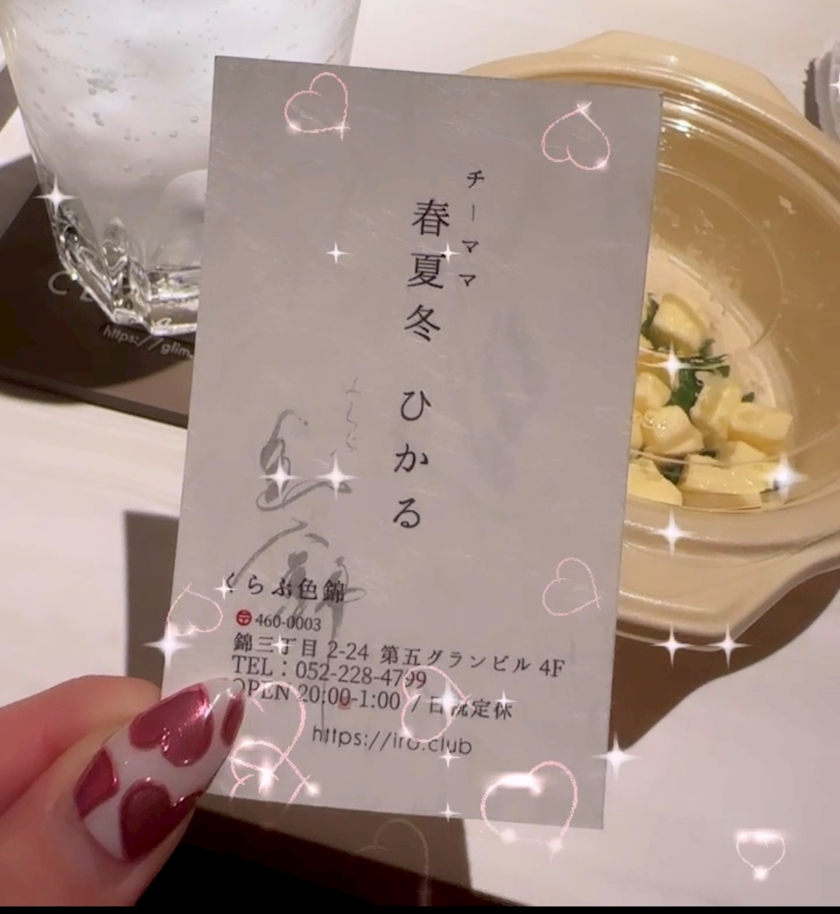 チーママ
春夏冬 ひかる
くらぶ
くらぶ色錦
〒460-0003
錦三丁目 2-24 第五グランビル 4F
TEL：052-228-4799
OPEN 20:00-1:00 / 日祝定休
https://iro.club
https://glim